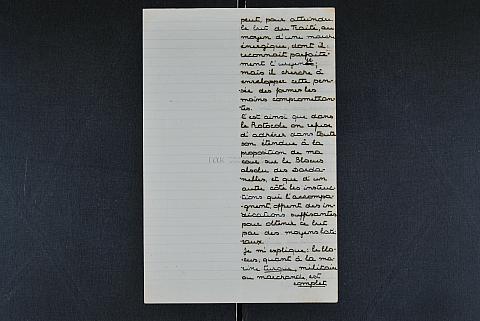 peut, pour atteindre
le but du Traité, au
moyen d'une mesure
énergique, dont il
reconnait parfaite-
ment l'urgence;
mais il cherche à
envelopper cette pen-
sée des formes les
moins compromettan-
tes.
C'est ainsi que dans
le Protocole on refuse
d'adhérer dans toute
son étendue à la
proposition de ma
cour sur le Blocus
absolu des Darda-
nelles, et que d'un
autre côté les instruc-
tions qui l'accompa-
gnent, offrent des in-
dications suffisantes
pour obtenir ce but
par des moyens laté-
raux.
Je m'explique: le blo-
cus, quant à la ma-
rine turque, militaire
ou marchande, est
complet